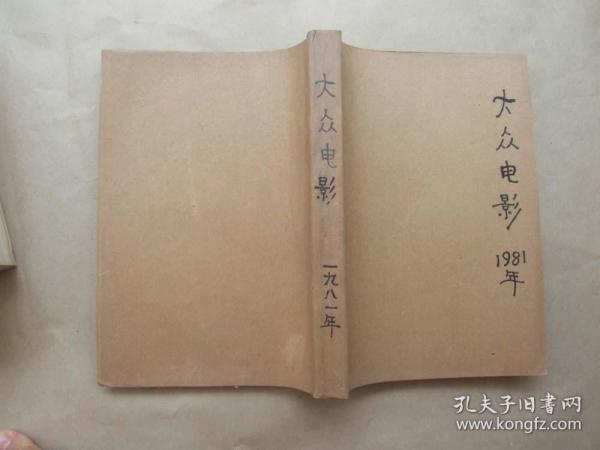 大众电影
一九八一年
大众电影
1981
年
孔夫子旧書网
www.kongfz.com